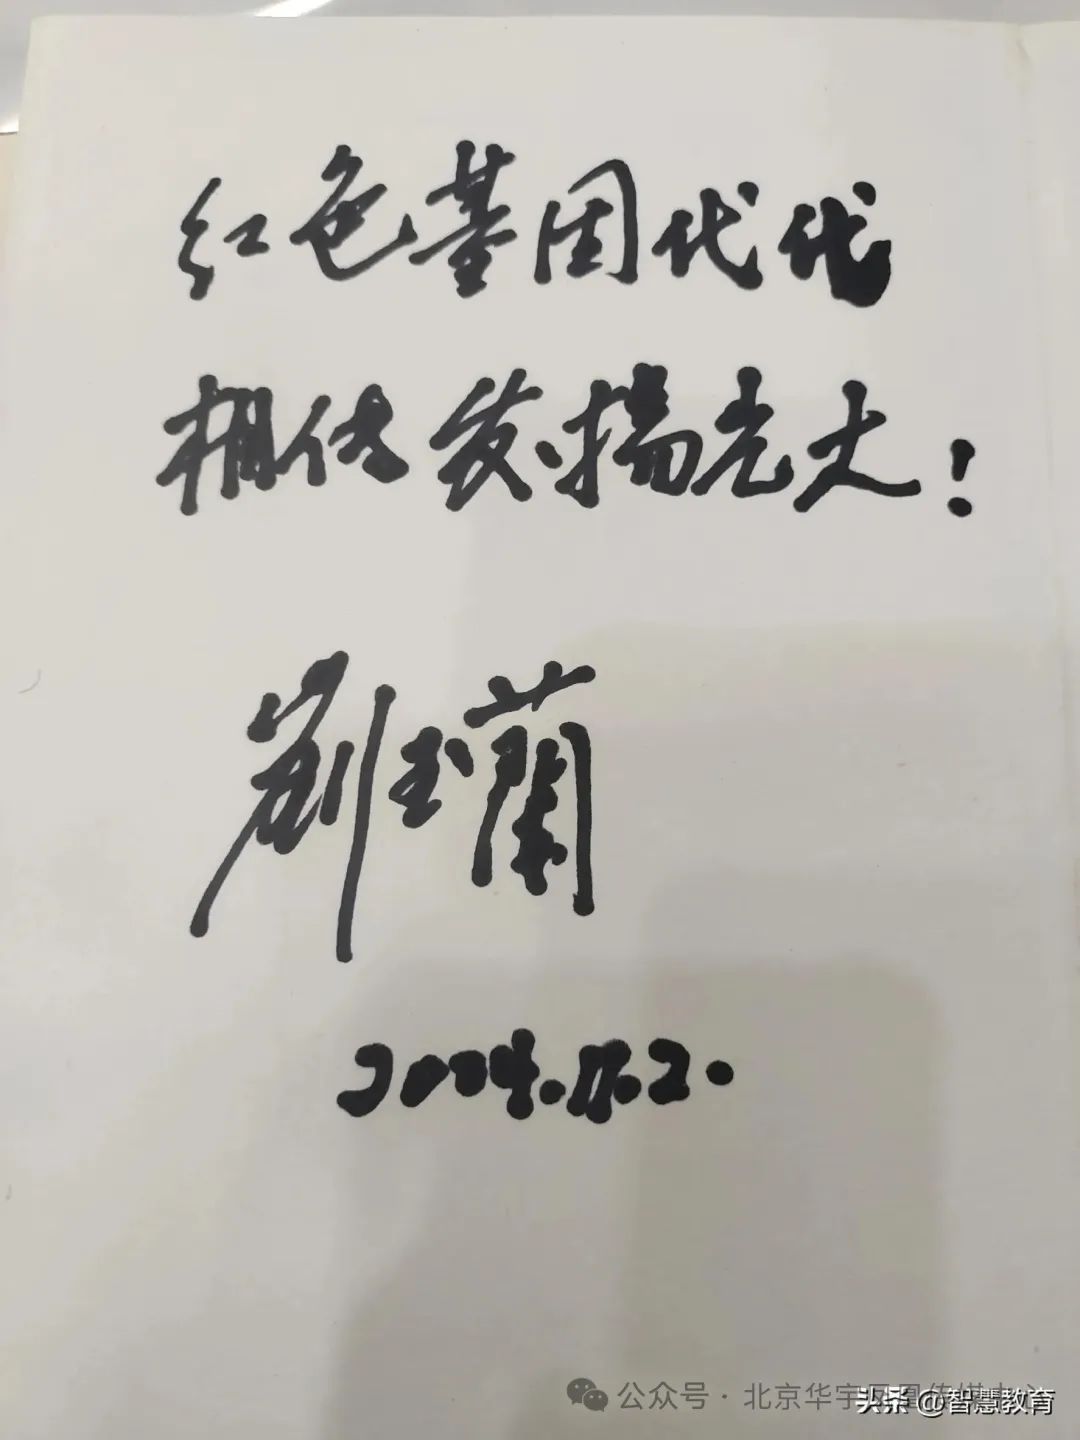 红色基因代代
相传发扬光大!
刘玉蘭
2024.11.2.
公众号·北京华宇
头条@智慧教育